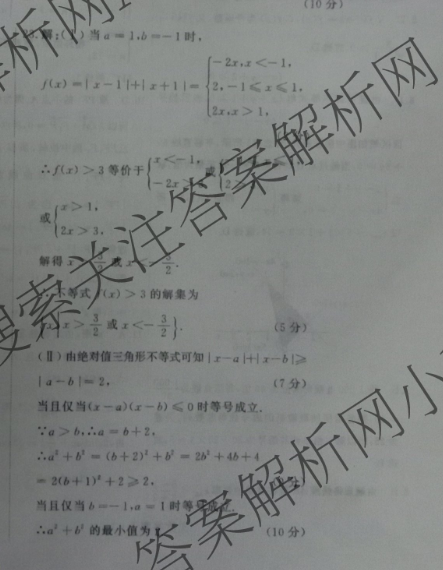 (10分)
解:(Ⅰ)当a=1,b=-1时,
f(x)=|x-1|+|x+1|={-2x,x<-1,
2,-1≤x≤1,
2x,x>1.
∴f(x)>3等价于{x<-1, 或
-2x>
或{x>1,
2x>3,
解得x 3/2 或x<-3/2.
不等式f(x)>3的解集为
x>3/2或x<-3/2}. (5分)
(Ⅱ)由绝对值三角形不等式可知|x-a|+|x-b|≥
|a-b|=2, (7分)
当且仅当(x-a)(x-b)≤0时等号成立.
∵a>b,∴a=b+2,
∴a²+b²=(b+2)²+b²=2b²+4b+4
=2(b+1)²+2≥2,
当且仅当b=-1,a=1时等号成立.
∴a²+b²的最小值为 (10分)
搜索关注答案解析网
答案解析网小